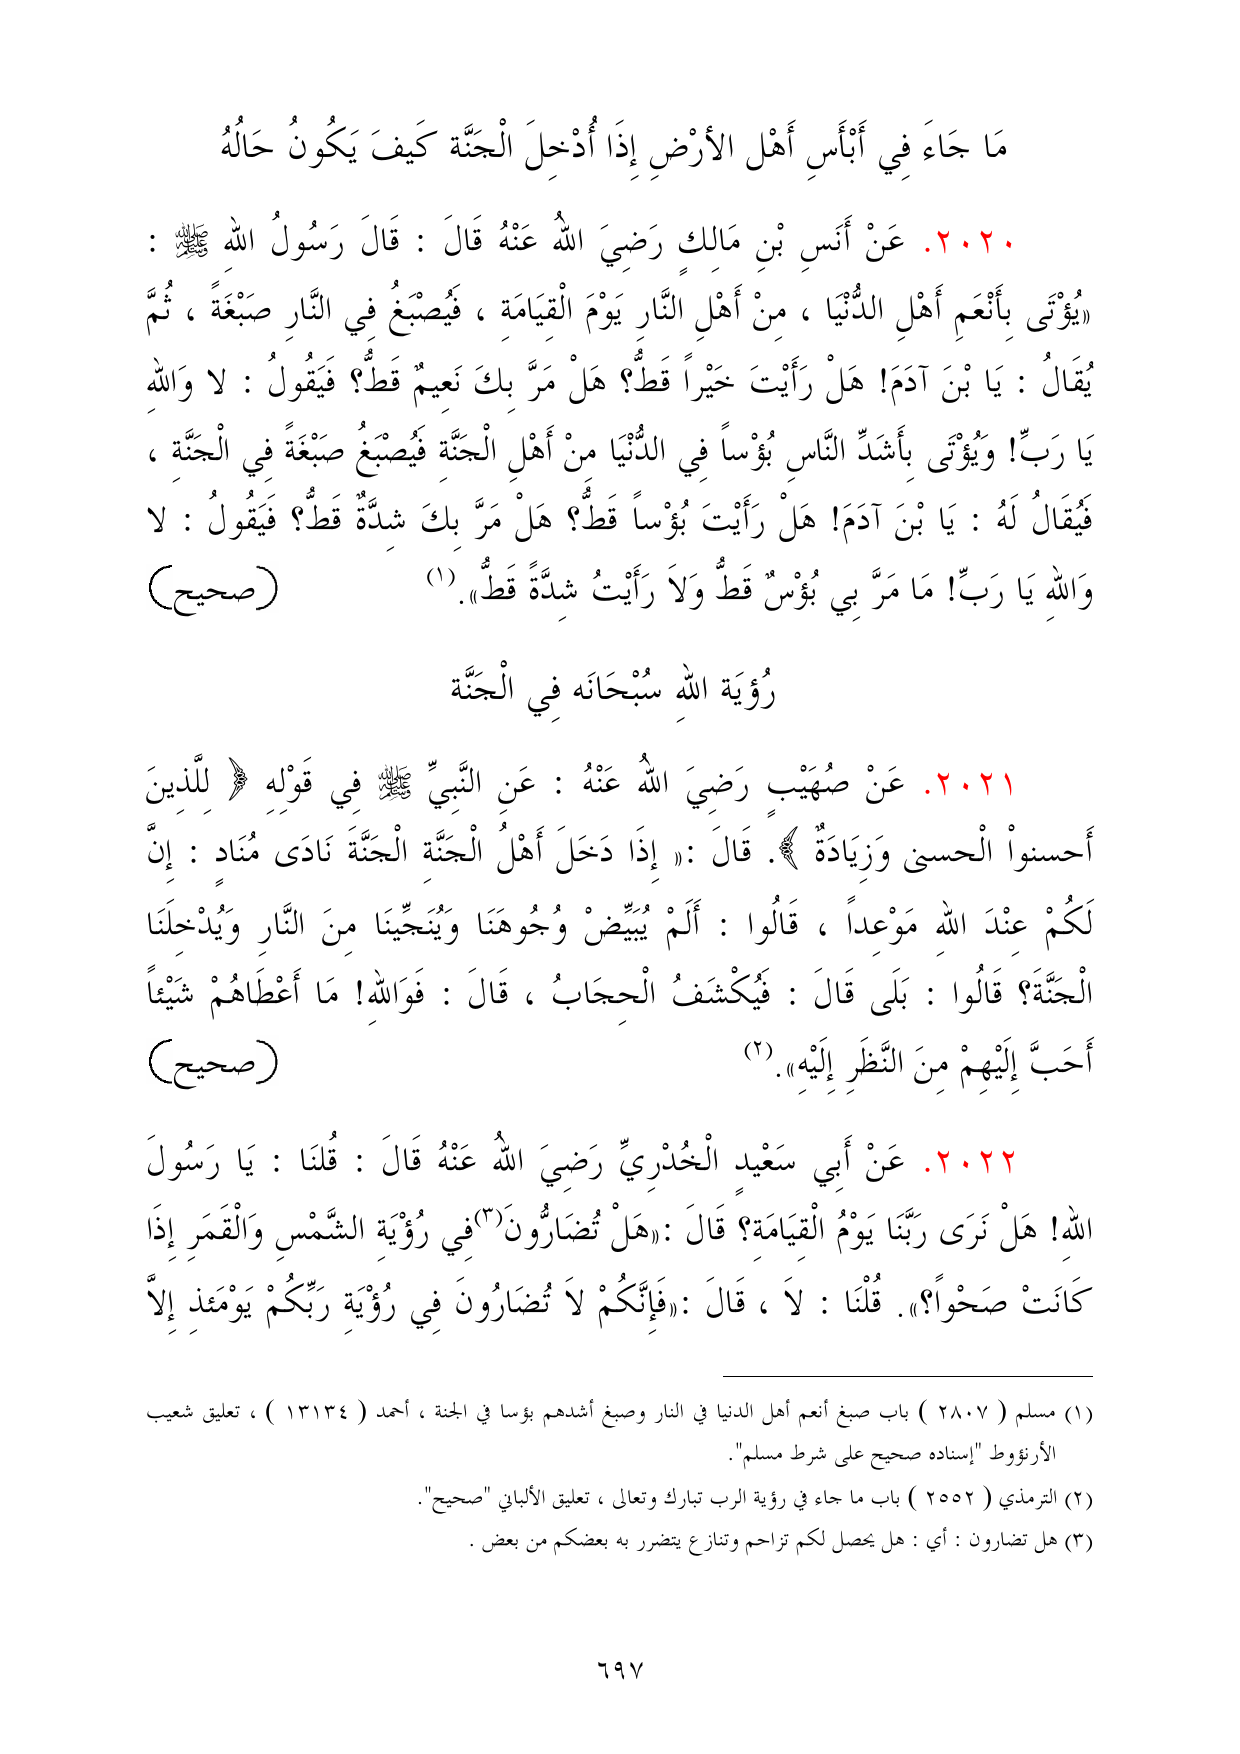 مَا جَاءَ فِي أَبْأَسِ أَهْل الأرْضِ إِذَا أُدْخِلَ الْجَنَّة كَيفَ يَكُونُ حَالُهُ
٢٠٢٠. عَنْ أَنَسِ بْنِ مَالِكٍ رَضِيَ اللهُ عَنْهُ قَالَ : قَالَ رَسُولُ اللهِ ﷺ :
«يُؤْتَى بِأَنْعَمِ أَهْلِ الدُّنْيَا ، مِنْ أَهْلِ النَّارِ يَوْمَ الْقِيَامَةِ ، فَيُصْبَغُ فِي النَّارِ صَبْغَةً ، ثُمَّ
يُقَالُ : يَا بْنَ آدَمَ! هَلْ رَأَيْتَ خَيْراً قَطُّ؟ هَلْ مَرَّ بِكَ نَعِيمٌ قَطُّ؟ فَيَقُولُ : لا وَاللهِ
يَا رَبِّ! وَيُؤْتَى بِأَشَدِّ النَّاسِ بُؤْساً فِي الدُّنْيَا مِنْ أَهْلِ الْجَنَّةِ فَيُصْبَغُ صَبْغَةً فِي الْجَنَّةِ ،
فَيُقَالُ لَهُ : يَا بْنَ آدَمَ! هَلْ رَأَيْتَ بُؤْساً قَطُّ؟ هَلْ مَرَّ بِكَ شِدَّةٌ قَطُّ؟ فَيَقُولُ : لا
وَاللهِ يَا رَبِّ! مَا مَرَّ بِي بُؤْسٌ قَطُّ وَلاَ رَأَيْتُ شِدَّةً قَطُّ».(١) (صحيح)
رُؤيَة اللهِ سُبْحَانَه فِي الْجَنَّة
٢٠٢١. عَنْ صُهَيْبٍ رَضِيَ اللهُ عَنْهُ : عَنِ النَّبِيِّ ﷺ فِي قَوْلِهِ ﴿ لِلَّذِينَ
أَحسنواْ الْحسنى وَزِيَادَةٌ ﴾. قَالَ :« إِذَا دَخَلَ أَهْلُ الْجَنَّةِ الْجَنَّةَ نَادَى مُنَادٍ : إِنَّ
لَكُمْ عِنْدَ اللهِ مَوْعِداً ، قَالُوا : أَلَمْ يُبَيِّضْ وُجُوهَنَا وَيُنَجِّينَا مِنَ النَّارِ وَيُدْخِلَنَا
الْجَنَّةَ؟ قَالُوا : بَلَى قَالَ : فَيُكْشَفُ الْحِجَابُ ، قَالَ : فَوَاللهِ! مَا أَعْطَاهُمْ شَيْئاً
أَحَبَّ إِلَيْهِمْ مِنَ النَّظَرِ إِلَيْهِ».(٢) (صحيح)
٢٠٢٢. عَنْ أَبِي سَعْيدٍ الْخُدْرِيِّ رَضِيَ اللهُ عَنْهُ قَالَ : قُلنَا : يَا رَسُولَ
اللهِ! هَلْ نَرَى رَبَّنَا يَوْمُ الْقِيَامَةِ؟ قَالَ :«هَلْ تُضَارُّونَ(٣)فِي رُؤْيَةِ الشَّمْسِ وَالْقَمَرِ إِذَا
كَانَتْ صَحْواً؟». قُلْنَا : لاَ ، قَالَ :«فَإِنَّكُمْ لاَ تُضَارُونَ فِي رُؤْيَةِ رَبِّكُمْ يَوْمَئذٍ إِلاَّ
(١) مسلم ( ٢٨٠٧ ) باب صبغ أنعم أهل الدنيا في النار وصبغ أشدهم بؤسا في الجنة ، أحمد ( ١٣١٣٤ ) ، تعليق شعيب
الأرنؤوط "إسناده صحيح على شرط مسلم".
(٢) الترمذي ( ٢٥٥٢ ) باب ما جاء في رؤية الرب تبارك وتعالى ، تعليق الألباني "صحيح".
(٣) هل تضارون : أي : هل يحصل لكم تزاحم وتنازع يتضرر به بعضكم من بعض .
٦٩٧